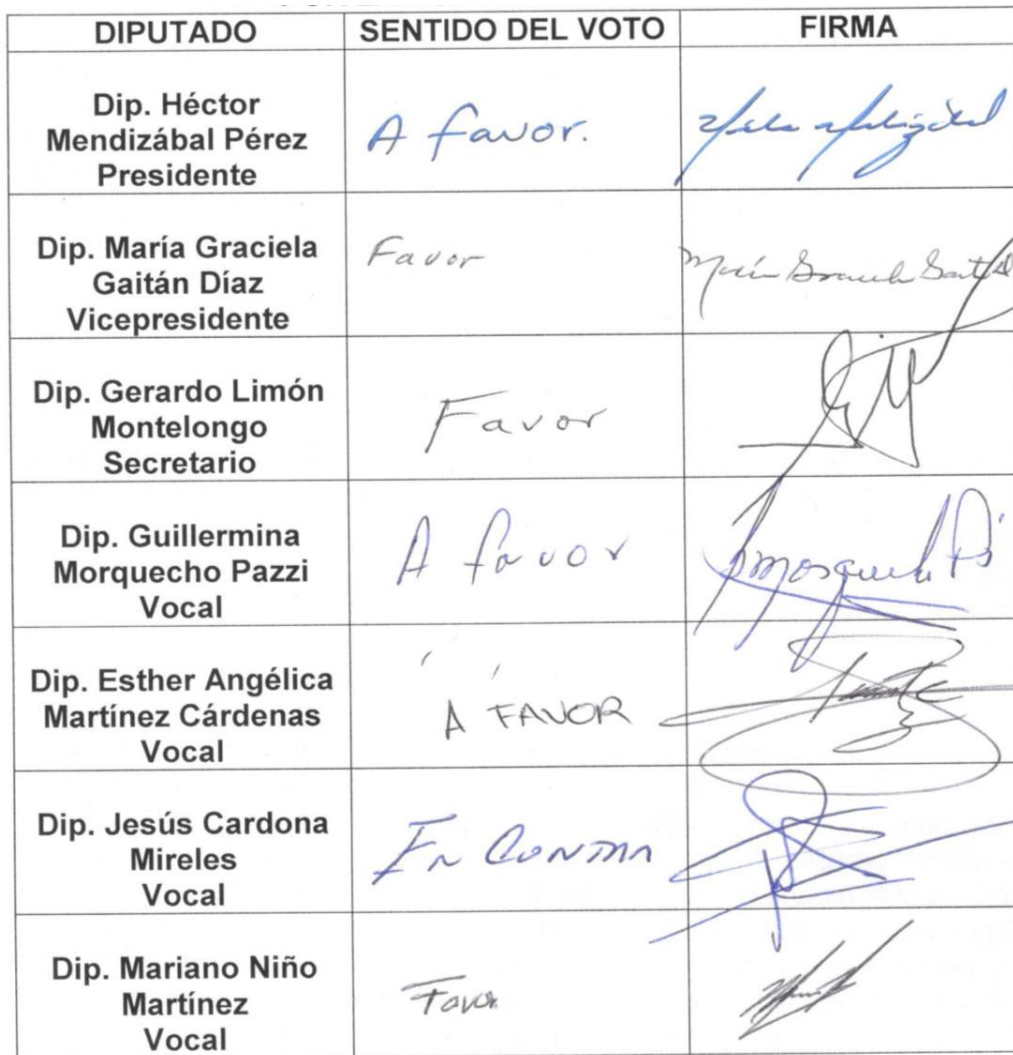 DIPUTADO SENTIDO DEL VOTO FIRMA
Dip. Héctor
Mendizábal Pérez
Presidente
A favor.
Dip. María Graciela
Gaitán Díaz
Vicepresidente
Favor
María Graciela Gaitán D
Dip. Gerardo Limón
Montelongo
Secretario
Favor
Dip. Guillermina
Morquecho Pazzi
Vocal
A favor
Dip. Esther Angélica
Martínez Cárdenas
Vocal
A FAVOR
Dip. Jesús Cardona
Mireles
Vocal
En Contra
Dip. Mariano Niño
Martínez
Vocal
Favor